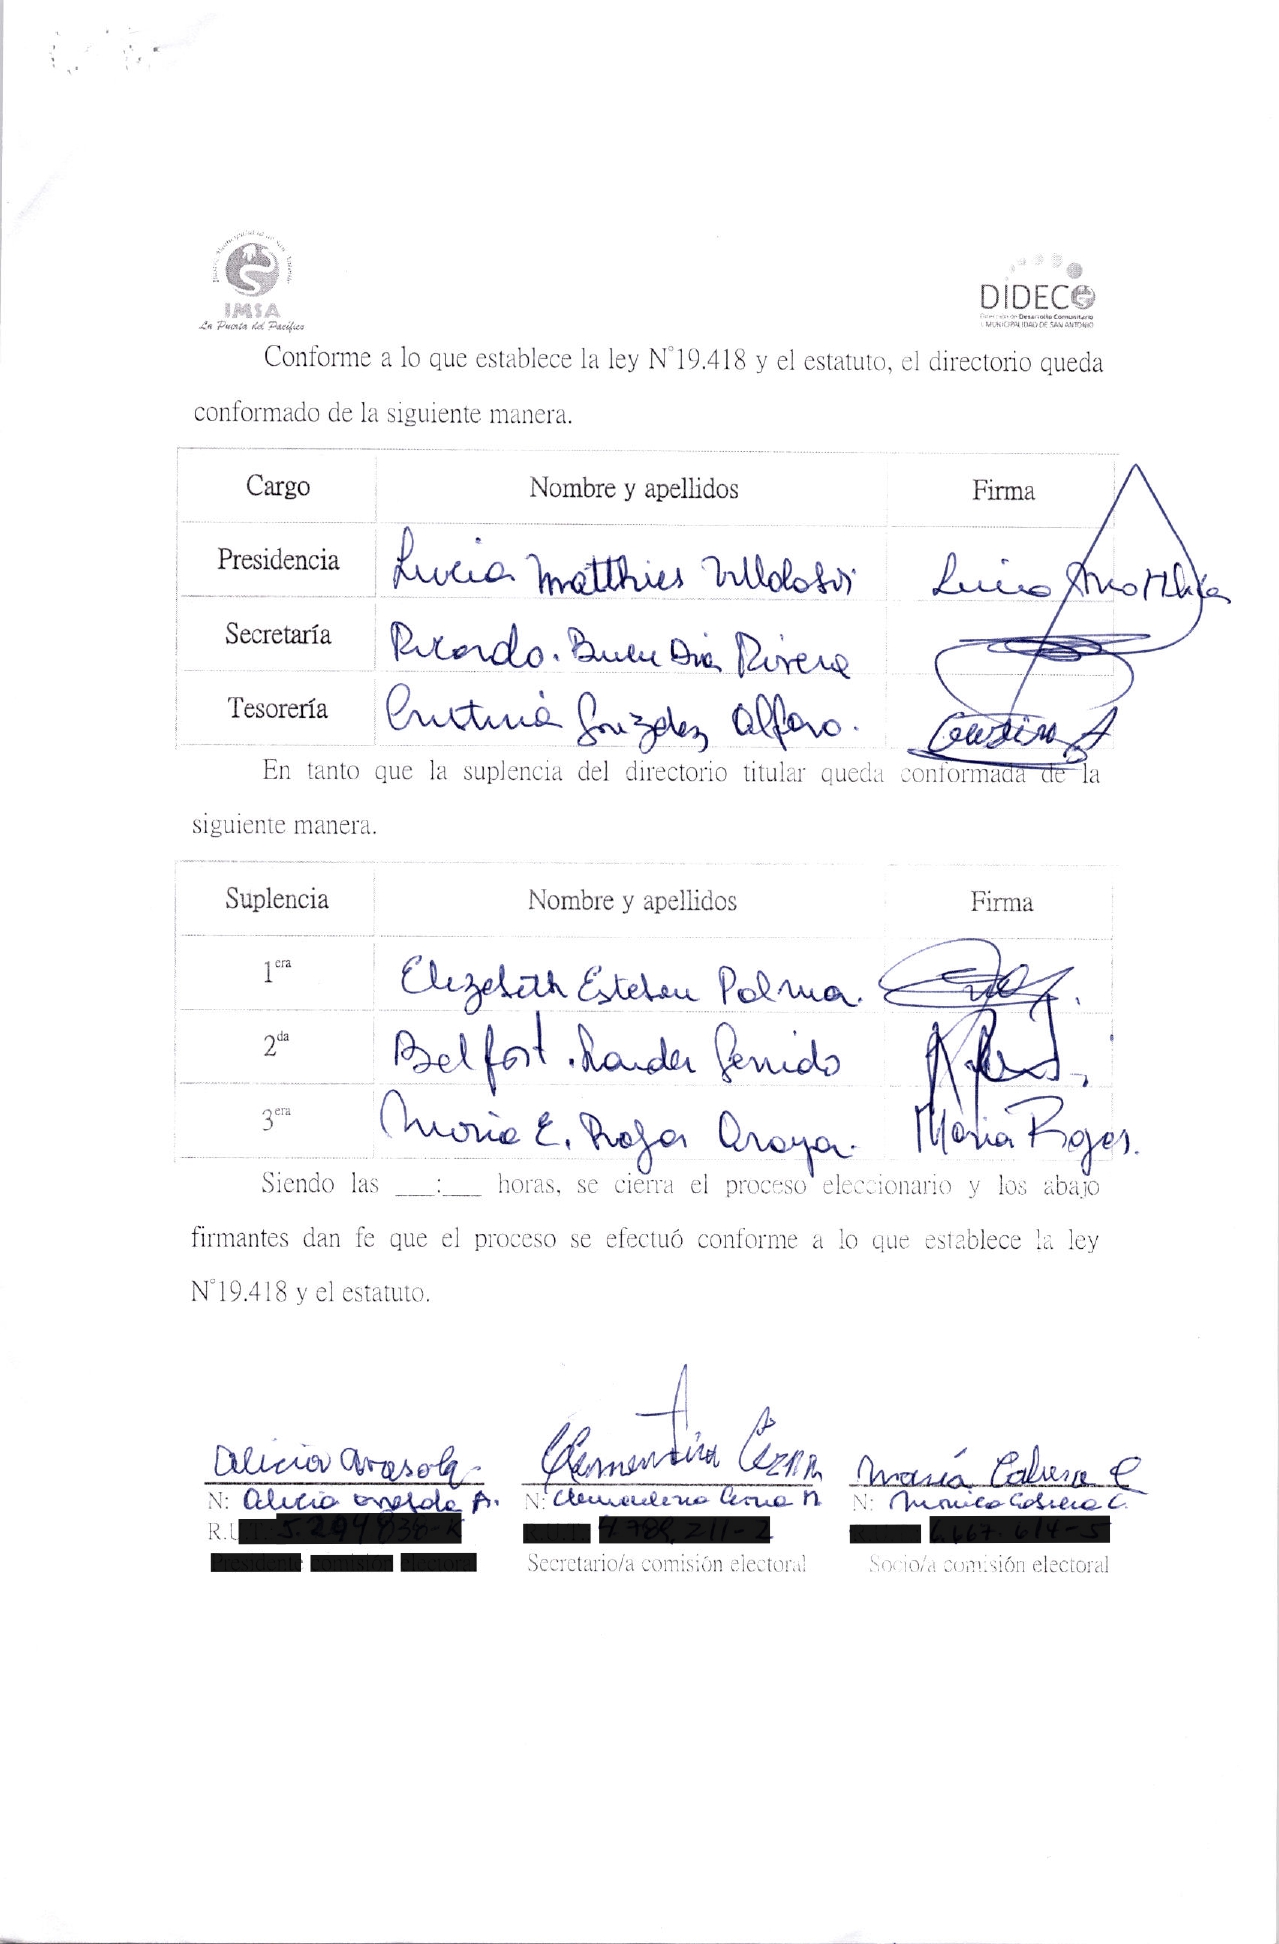 IMSA
La Puerta del Pacífico
DIDECO
Dirección de Desarrollo Comunitario
I. MUNICIPALIDAD DE SAN ANTONIO
Conforme a lo que establece la ley N°19.418 y el estatuto, el directorio queda
conformado de la siguiente manera.
Cargo Nombre y apellidos Firma
Presidencia Lucia Matthies
Secretaría Ricardo. Buen Dia Rivera
Tesorería Cristina González Alfaro.
En tanto que la suplencia del directorio titular queda conformada de la
siguiente manera.
Suplencia Nombre y apellidos Firma
1era Elizabeth Esteban Palma.
2da Belfort
3era Maria E. Rojas Araya. Maria Rojas.
Siendo las ___:___ horas, se cierra el proceso eleccionario y los abajo
firmantes dan fe que el proceso se efectuó conforme a lo que establece la ley
N°19.418 y el estatuto.
Alicia Clementina María
N: Alicia N: N:
Secretario/a comisión electoral Socio/a comisión electoral